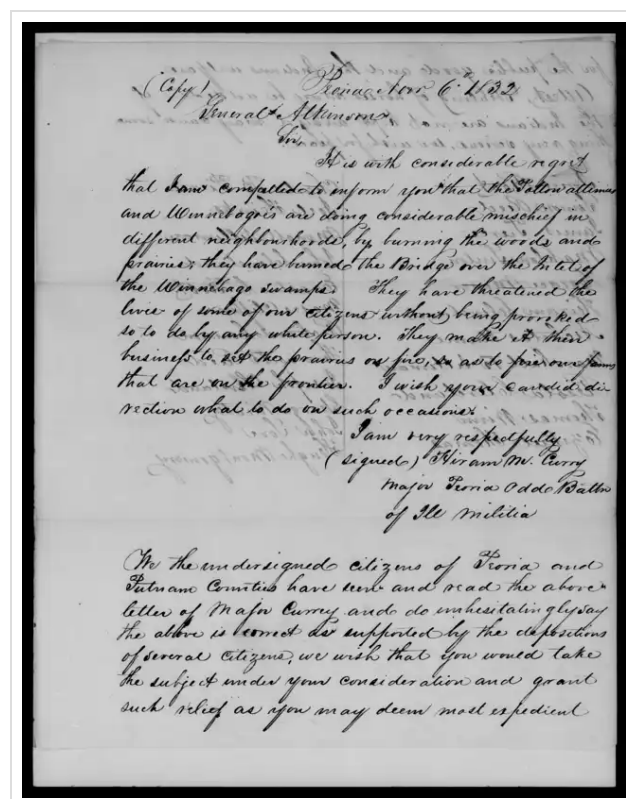 (Copy) Peoria Nov 6th 1832
General Atkinson
Sir,
It is with considerable regret
that I am compelled to inform you that the
and Winnebagoes are doing considerable mischief in
different neighbourhoods, by burning the woods and
prairies; they have burned the Bridge over the Inlet of
the Winnebago Swamps. They have threatened the
lives of some of our citizens without being provoked
so to do by any white person. They make it their
business to set the prairies on fire, so as to fire our farms
that are on the frontier. I wish your candid di-
rection what to do on such occasions.
I am very respectfully
(signed) Hiram M. Curry
Major Peoria Odd Battn
of Ill Militia
We the undersigned citizens of Peoria and
Putnam Counties have seen and read the above
letter of Major Currey and do unhesitatingly say
the above is correct as supported by the depositions
of several citizens, we wish that you would take
the subject under your consideration and grant
such relief as you may deem most expedient